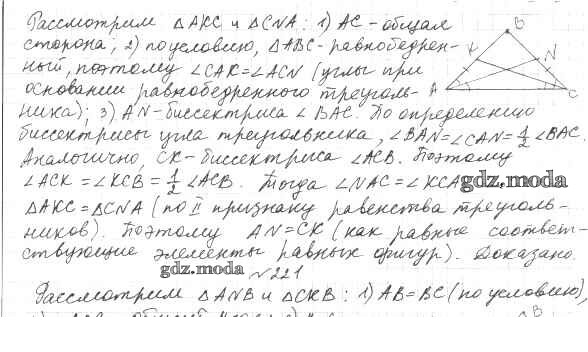 Рассмотрим △AKC и △CNA: 1) AC - общая
сторона; 2) по условию, △ABC - равнобедрен-
ный, поэтому ∠CAK = ∠ACN (углы при
основании равнобедренного треуголь-
ника); 3) AN - биссектриса ∠BAC. По определению
биссектрисы угла треугольника, ∠BAN = ∠CAN = 1/2 ∠BAC.
Аналогично, CK - биссектриса ∠ACB. Поэтому
∠ACK = ∠KCB = 1/2 ∠ACB. Тогда ∠NAC = ∠KCA
gdz.moda
△AKC = △CNA (по II признаку равенства треуголь-
ников). Поэтому AN = CK (как равные соответ-
ствующие элементы равных фигур). Доказано.
gdz.moda
№221
Рассмотрим △ANB и △CKB: 1) AB = BC (по условию),
B
K
N
A
C
B